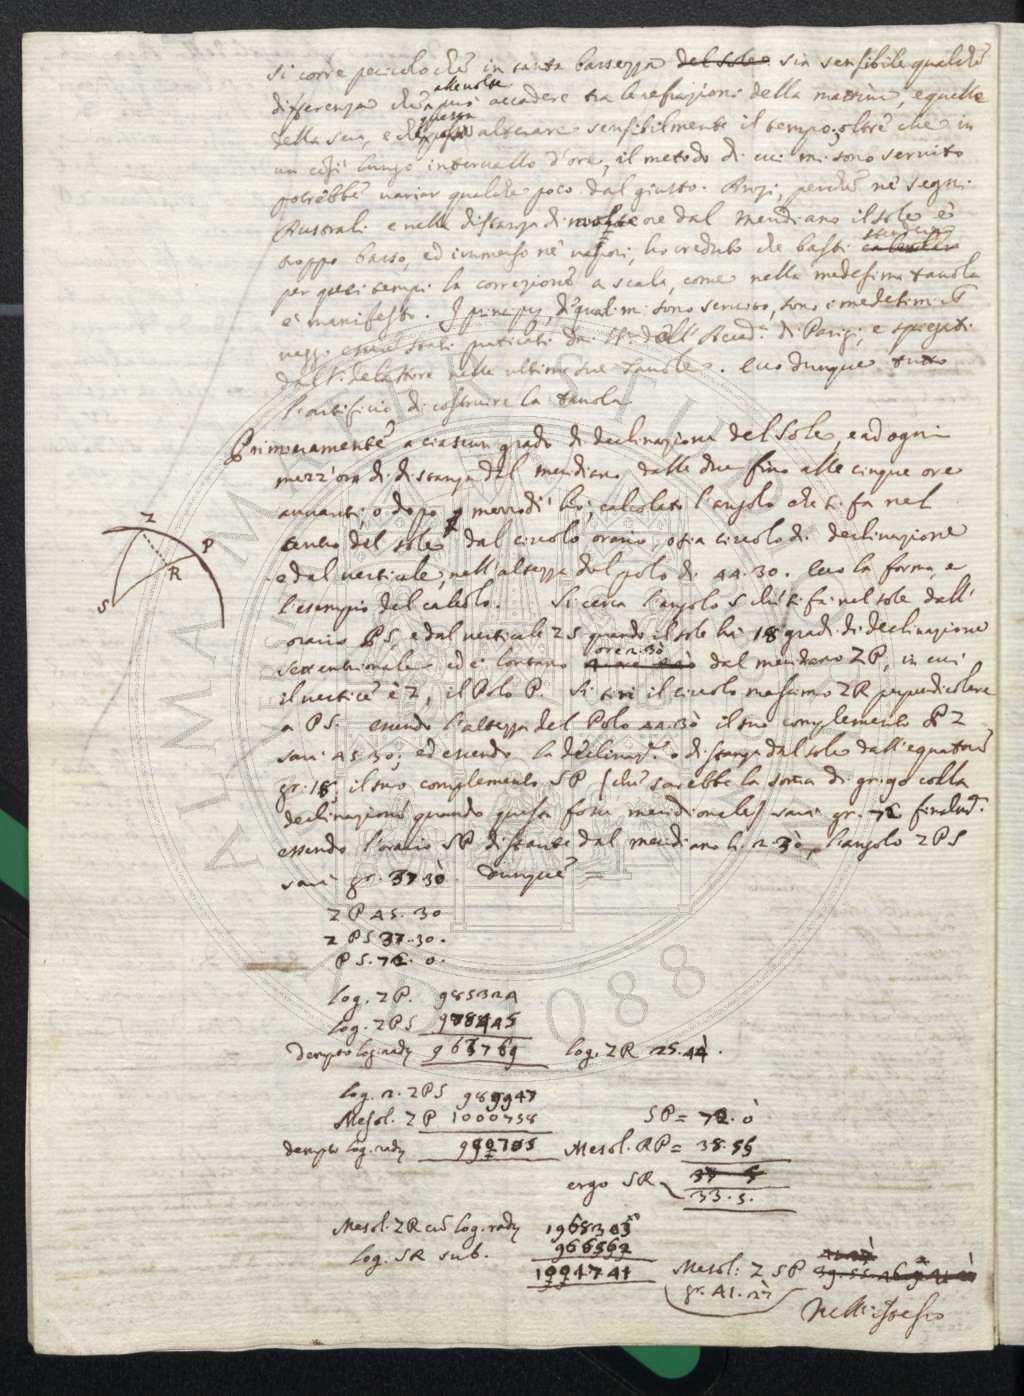 si corre pericolo che in tanta bassezza del sole sia sensibile qualche
differenza che alle volte può accadere tra le refrazioni della mattina, e quelle
della sera, e che questa possa alterare sensibilmente il tempo; oltre che in
un così lungo intervallo d'ore, il metodo di cui mi sono servito
potrebbe variar qualche poco dal giusto. Anzi, perche ne' segni
Australi e nella distanza di molte ore dal meridiano il sole è
troppo basso, ed immerso ne' vapori, ho creduto che basti
per quei tempi la correzione a scala, come nella medesima tavola
è manifesto. I principij, de' quali mi sono servito, sono i medesimi che
veggo essere stati praticati da' SS.ri dell' Accad.a di Parigi, e spiegati
dal S. de la Hire nelle ultime sue Tavole. Ecco dunque tutto
l'artificio di costruire la tavola.
Primieramente a ciascun grado di declinazione del Sole, e ad ogni
mezz'ora di distanza dal meridiano dalle due fino alle cinque ore
avanti, o dopo mezzodì hò calcolato l'angolo che si fa nel
centro del sole dal circolo orario, o sia circolo di declinazione
e dal verticale, nell'altezza del polo di 44.30. Ecco la forma, e
l'esempio del calcolo. Si cerca l'angolo S che si fa nel sole dall'
orario PS, e dal verticale ZS quando il sole hà 18 gradi di declinazione
settentrionale ed è lontano ore 2.30 dal meridiano ZP, in cui
il vertice è Z, il Polo P. Si tiri il circolo massimo ZR perpendicolare
a PS. essendo l'altezza del Polo 44.30 il suo complemento PZ
sarà 45.30; ed essendo la declinaz.e o distanza dal sole dall'equatore
gr. 18, il suo complemento SP (che sarebbe la somma di gr. 90 colla
declinazione quando questa fosse meridionale) sarà gr. 72 finalm.e
essendo l'orario SP distante dal meridiano h. 2.30, l'angolo ZPS
sarà gr. 37.30. Dunque =
Z
P
R
S
ZP 45.30
ZPS 37.30.
PS. 72. 0.
log. ZP. 985324
log. ZPS 978445
dempto log. rady 963769 log. ZR 25.44.
log. 2. ZPS 989947
Mesol. ZP 1000758 SP = 72.0
dempto log. rady 990705 Mesol. RP = 38.55
ergo SR 33.5.
Mesol. ZR cū log. rady 1968303
log. SR sub.
Mesol: ZSP
gr. 41.27